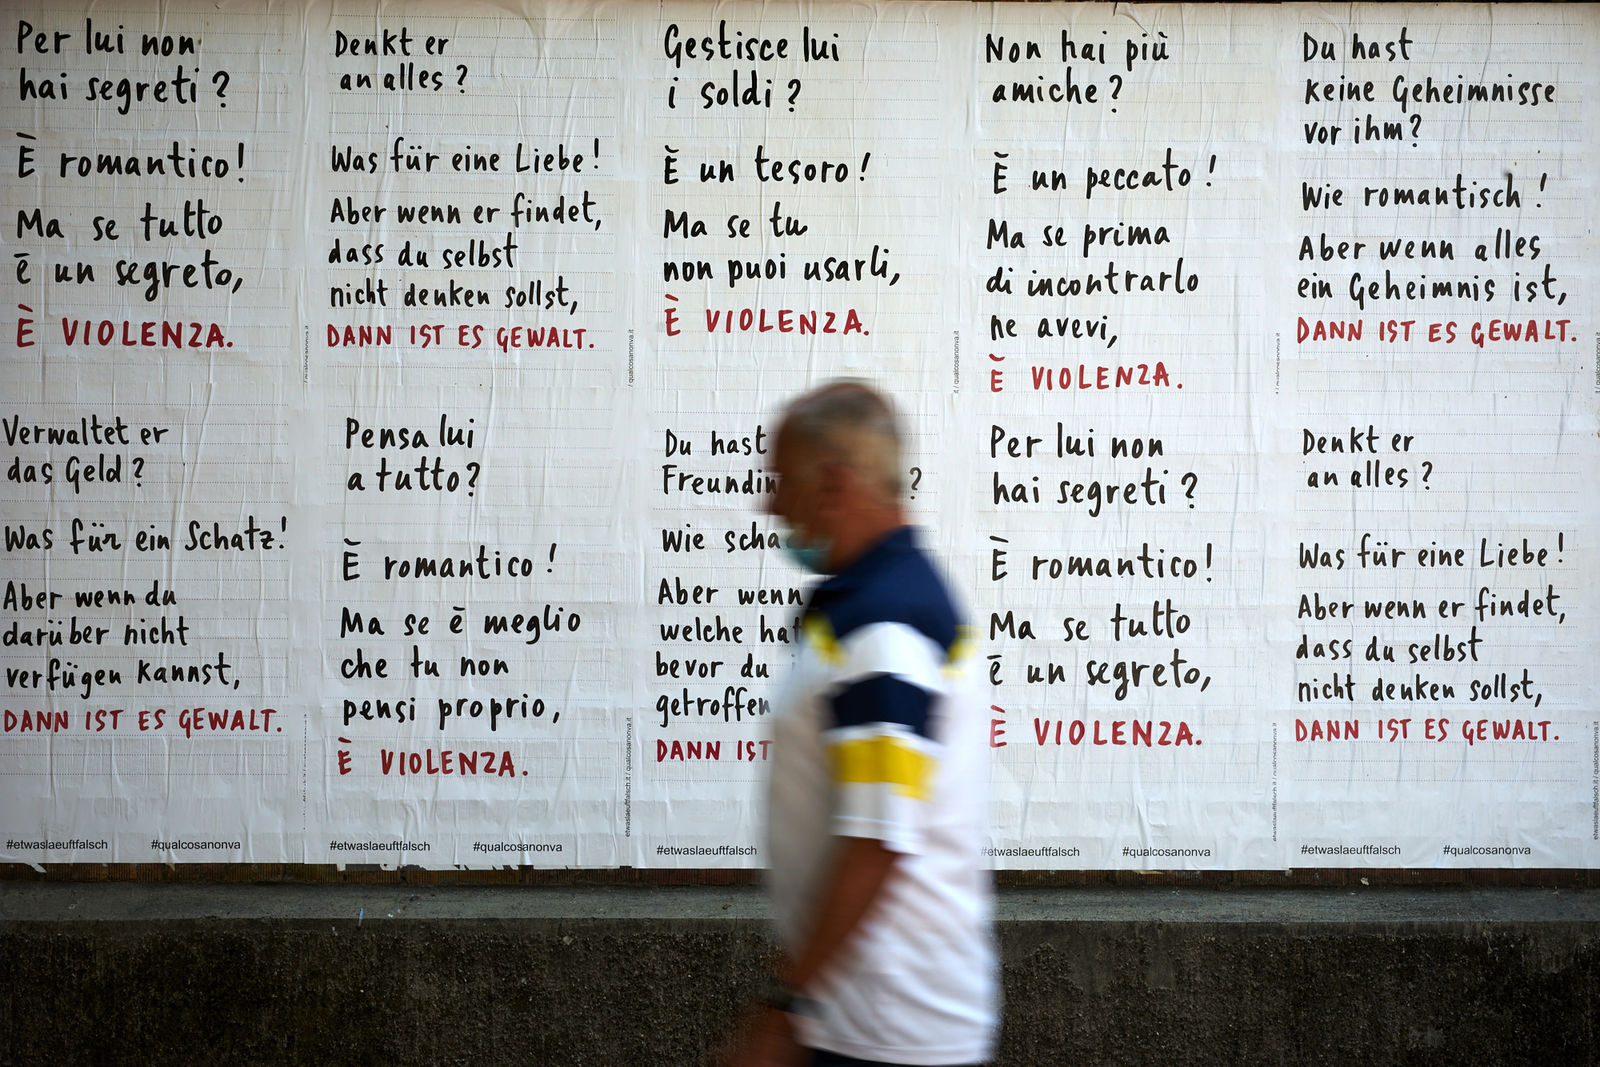 Per lui non
hai segreti?
È romantico!
Ma se tutto
è un segreto,
È VIOLENZA.
Denkt er
an alles?
Was für eine Liebe!
Aber wenn er findet,
dass du selbst
nicht denken sollst,
DANN IST ES GEWALT.
Gestisce lui
i soldi?
È un tesoro!
Ma se tu
non puoi usarli,
È VIOLENZA.
Non hai più
amiche?
È un peccato!
Ma se prima
di incontrarlo
ne avevi,
È VIOLENZA.
Du hast
keine Geheimnisse
vor ihm?
Wie romantisch!
Aber wenn alles
ein Geheimnis ist,
DANN IST ES GEWALT.
Verwaltet er
das Geld?
Was für ein Schatz!
Aber wenn du
darüber nicht
verfügen kannst,
DANN IST ES GEWALT.
#etwaslaeuftfalsch #qualcosanonva
Pensa lui
a tutto?
È romantico!
Ma se è meglio
che tu non
pensi proprio,
È VIOLENZA.
#etwaslaeuftfalsch #qualcosanonva
etwaslaeuftfalsch.it / qualcosanonva.it
Du hast
Freundin ?
Wie scha
Aber wenn
welche hat
bevor du
getroffen
DANN IST
#etwaslaeuftfalsch
Per lui non
hai segreti?
È romantico!
Ma se tutto
è un segreto,
È VIOLENZA.
#etwaslaeuftfalsch #qualcosanonva
etwaslaeuftfalsch.it / qualcosanonva.it
Denkt er
an alles?
Was für eine Liebe!
Aber wenn er findet,
dass du selbst
nicht denken sollst,
DANN IST ES GEWALT.
#etwaslaeuftfalsch #qualcosanonva